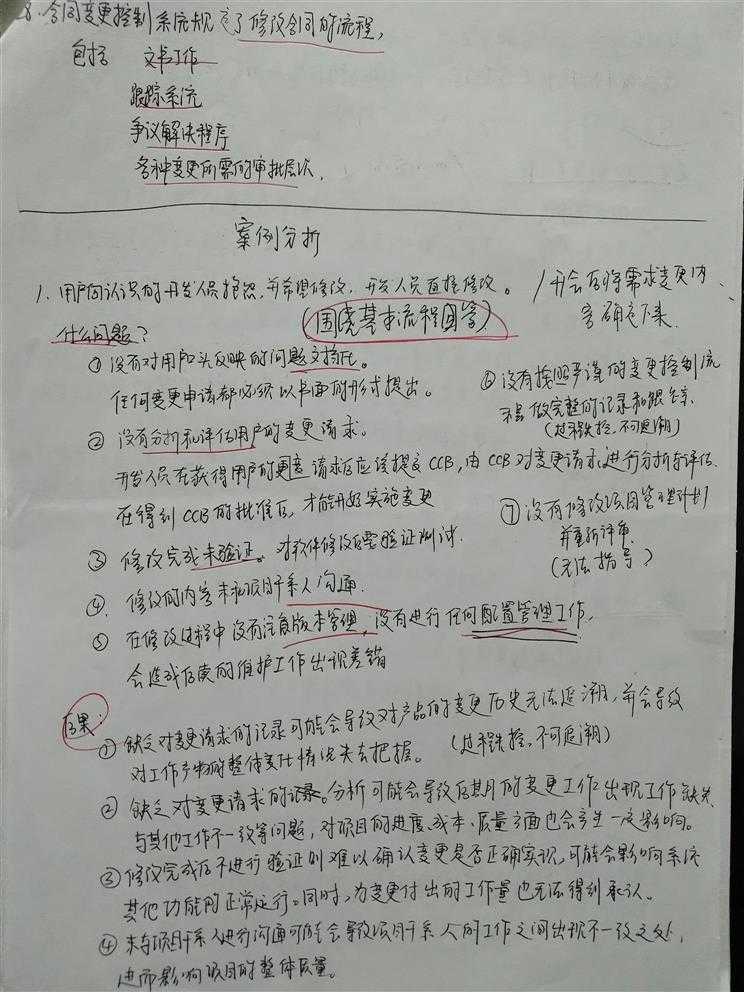 8.合同变更控制系统规定了修改合同的流程,
包括 文书工作
跟踪系统
争议解决程序
各种变更所需的审批层次.
案例分析
1. 用户向认识的开发人员抱怨,并希望修改,开发人员直接修改。
(围绕基本流程回答)
什么问题?
①没有对用户口头反映的问题文档化。
任何变更申请都必须以书面的形式提出。
②没有分析和评估用户的变更请求。
开发人员在获得用户的变更请求后应该提交CCB,由CCB对变更请求进行分析与评估.
在得到CCB的批准后,才能开始实施变更
③修改完成未验证。对软件修改后需验证测试.
④.修改的内容未和项目干系人沟通.
⑤在修改过程中没有注意版本管理,没有进行任何配置管理工作,
会造成后续的维护工作出现差错
/开会后将需求变更内
容确定下来.
⑥没有按照严谨的变更控制流
程做完整的记录和跟踪.
(过程失控,不可追溯)
⑦没有修改项目管理计划
并重新评审.
(无法指导)
后果:
①缺乏对变更请求的记录可能会导致对产品的变更历史无法追溯,并会导致
对工作产物的整体变化情况失去把握。(过程失控,不可追溯)
②缺乏对变更请求的记录。分析可能会导致后期的变更工作出现工作缺失
与其他工作不一致等问题,对项目的进度、成本、质量方面也会产生一定影响。
③修改完成后不进行验证则难以确认变更是否正确实现,可能会影响系统
其他功能的正常运行。同时,为变更付出的工作量也无法得到承认。
④未与项目干系人进行沟通可能会导致项目干系人的工作之间出现不一致之处,
进而影响项目的整体质量。